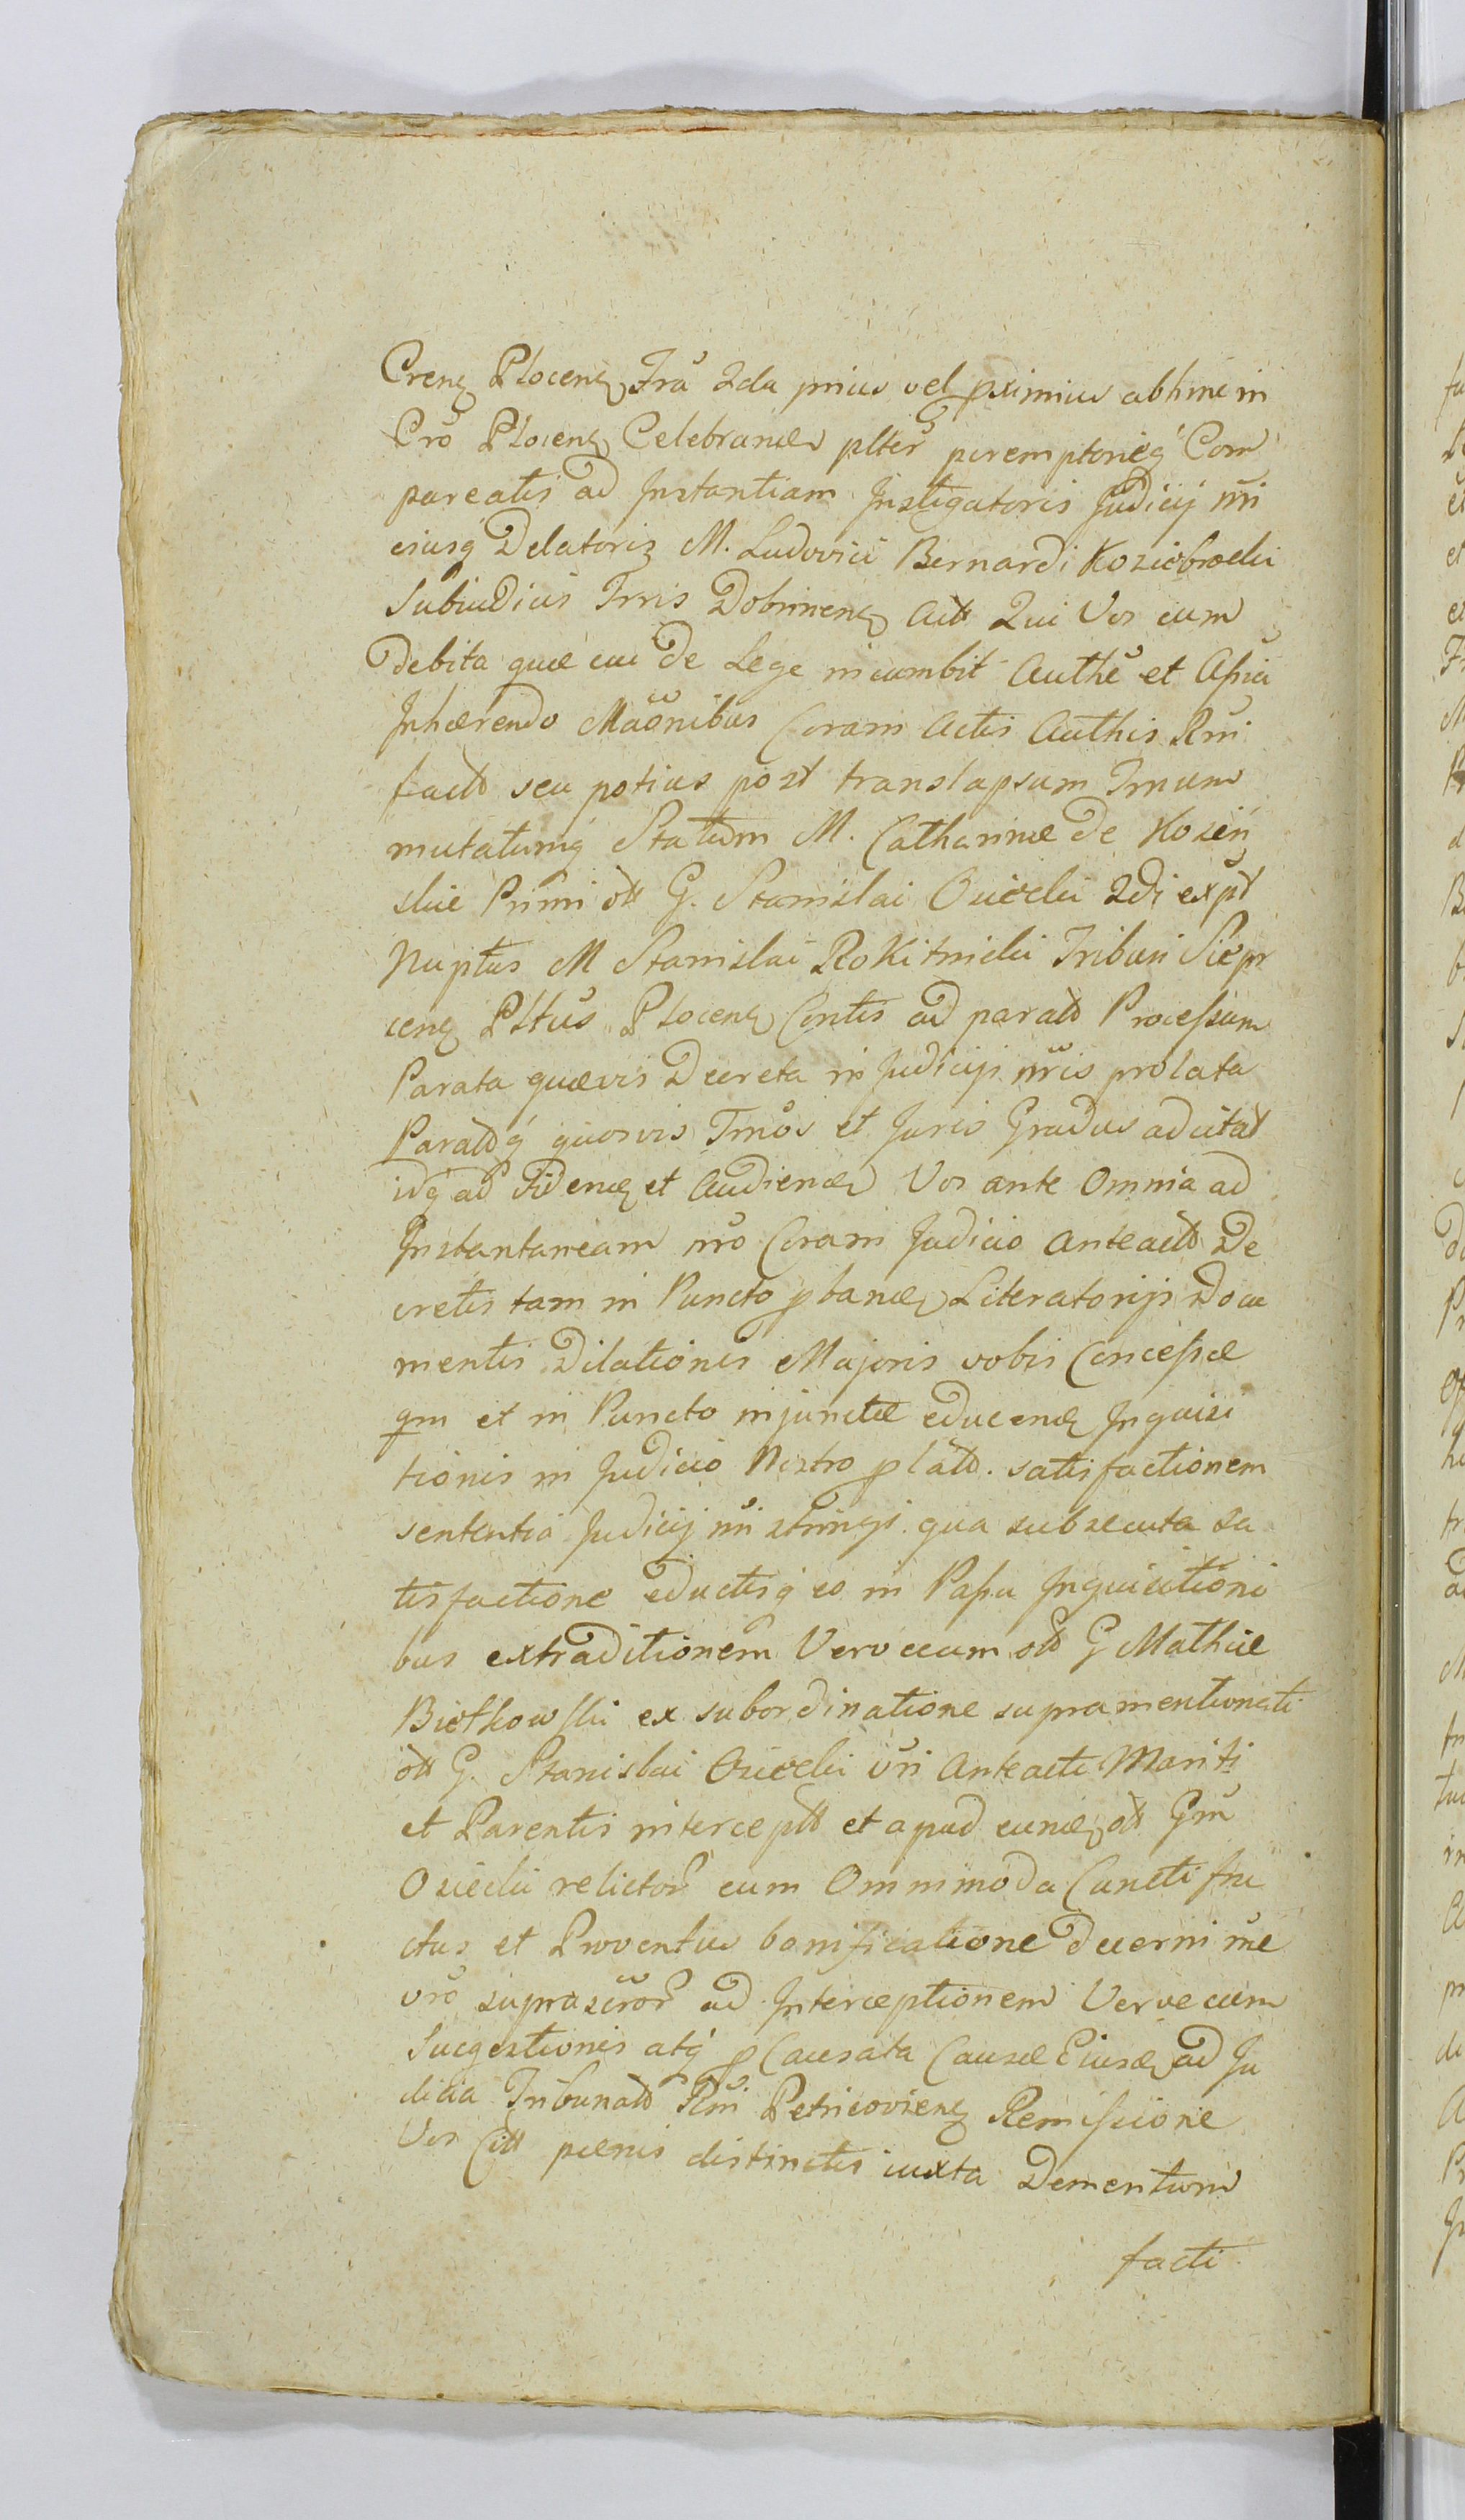 Crenz Plocenz Fra 2da prius vel pximius abhinc in
Cro Plocenz Celebranda plter peremptorieq Com
pareatis ad Instantiam Instigatoris Judicij nri
eiusq Delatoris M. Ludovici Bernardi Koziebrodzki
Subiudicis Trris Dobrinenz Act Qui Vos cum
debita quae cui de Lege incumbit Authe et Assia
Inhaerendo Maonibus Coram Actis Authis Rni
fact seu potius post translapsum Trnum
mutatumq Statum M. Catharinae de Kozen
skie Primi ott G. Stanislai Osiecki 2di expt
Nuptus M Stanislai Rokitnicki Tribuni Siepr
cenz Pltus Plocenz Contis ad parat Processum
Parata quaevis Decreta in Judicijs nris prolata
Paratq quosvis Trnos et Juris Gradus adcitat
idq ad Videnz et Audienda Vos ante Omnia ad
Instantaneam nro Coram Judicio anteact De
cretis tam in Puncto pbanda Literatorijs Docu
mentis Dilationis Majoris vobis Concessae
qm et in Puncto injunctae educenz Inquisi
tionis in Judicio Nostro plat. satisfactionem
sententia Judicij nri stringi qua subsecuta sa
tisfactione eductisq eo in Passu Inquisitioni
bus extraditionem Vervecum ott G Mathiae
Bietkowski ex subordinatione supramentionati
ott G. Stanislai Osiecki Vri Anteacti Mariti
et Parentis intercept et apud eunda ott Gm
Osiecki relictor cum Omnimoda Cuncti fru
ctus et Proventus bonificatione decerni me
vro suprascror ad Interceptionem Vervecum
Sucgestionis atq p Causata Causae Eiusd ad Ju
dicia Tribunalt Rni Petricovienz Remissione
Vos Citt paenis distinctis iuxta Demeritum
facti